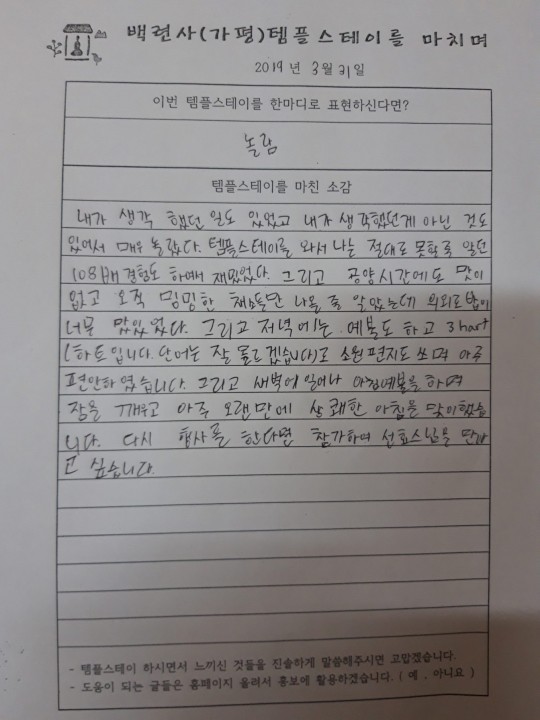 백련사(가평)템플스테이를 마치며
2019 년 3월 31일
이번 템플스테이를 한마디로 표현하신다면?
놀람
템플스테이를 마친 소감
내가 생각 했던 일도 있었고 내가 생각했던게 아닌 것도
있어서 매우 놀랐다. 템플스테이를 와서 나는 절대로 못할 줄 알던
108배 경험도 하여서 재밌었다. 그리고 공양시간에도 맛이
없고 오직 밍밍한 채소들만 나올 줄 알았는데 의외로 밥이
너무 맛있었다. 그리고 저녁에는 예불도 하고 3hart
(하트입니다. 단어는 잘 모르겠습니다)고 소원 편지도 쓰며 아주
편안하였습니다. 그리고 새벽에 일어나 아침예불을 하며
잠을 깨우고 아주 오랜만에 상쾌한 아침을 맞이했습
니다. 다시 행사를 한다면 참가하여 선효스님을 만나
고 싶습니다.
- 템플스테이 하시면서 느끼신 것들을 진솔하게 말씀해주시면 고맙겠습니다.
- 도움이 되는 글들은 홈페이지 올려서 홍보에 활용하겠습니다. ( 예 , 아니요 )